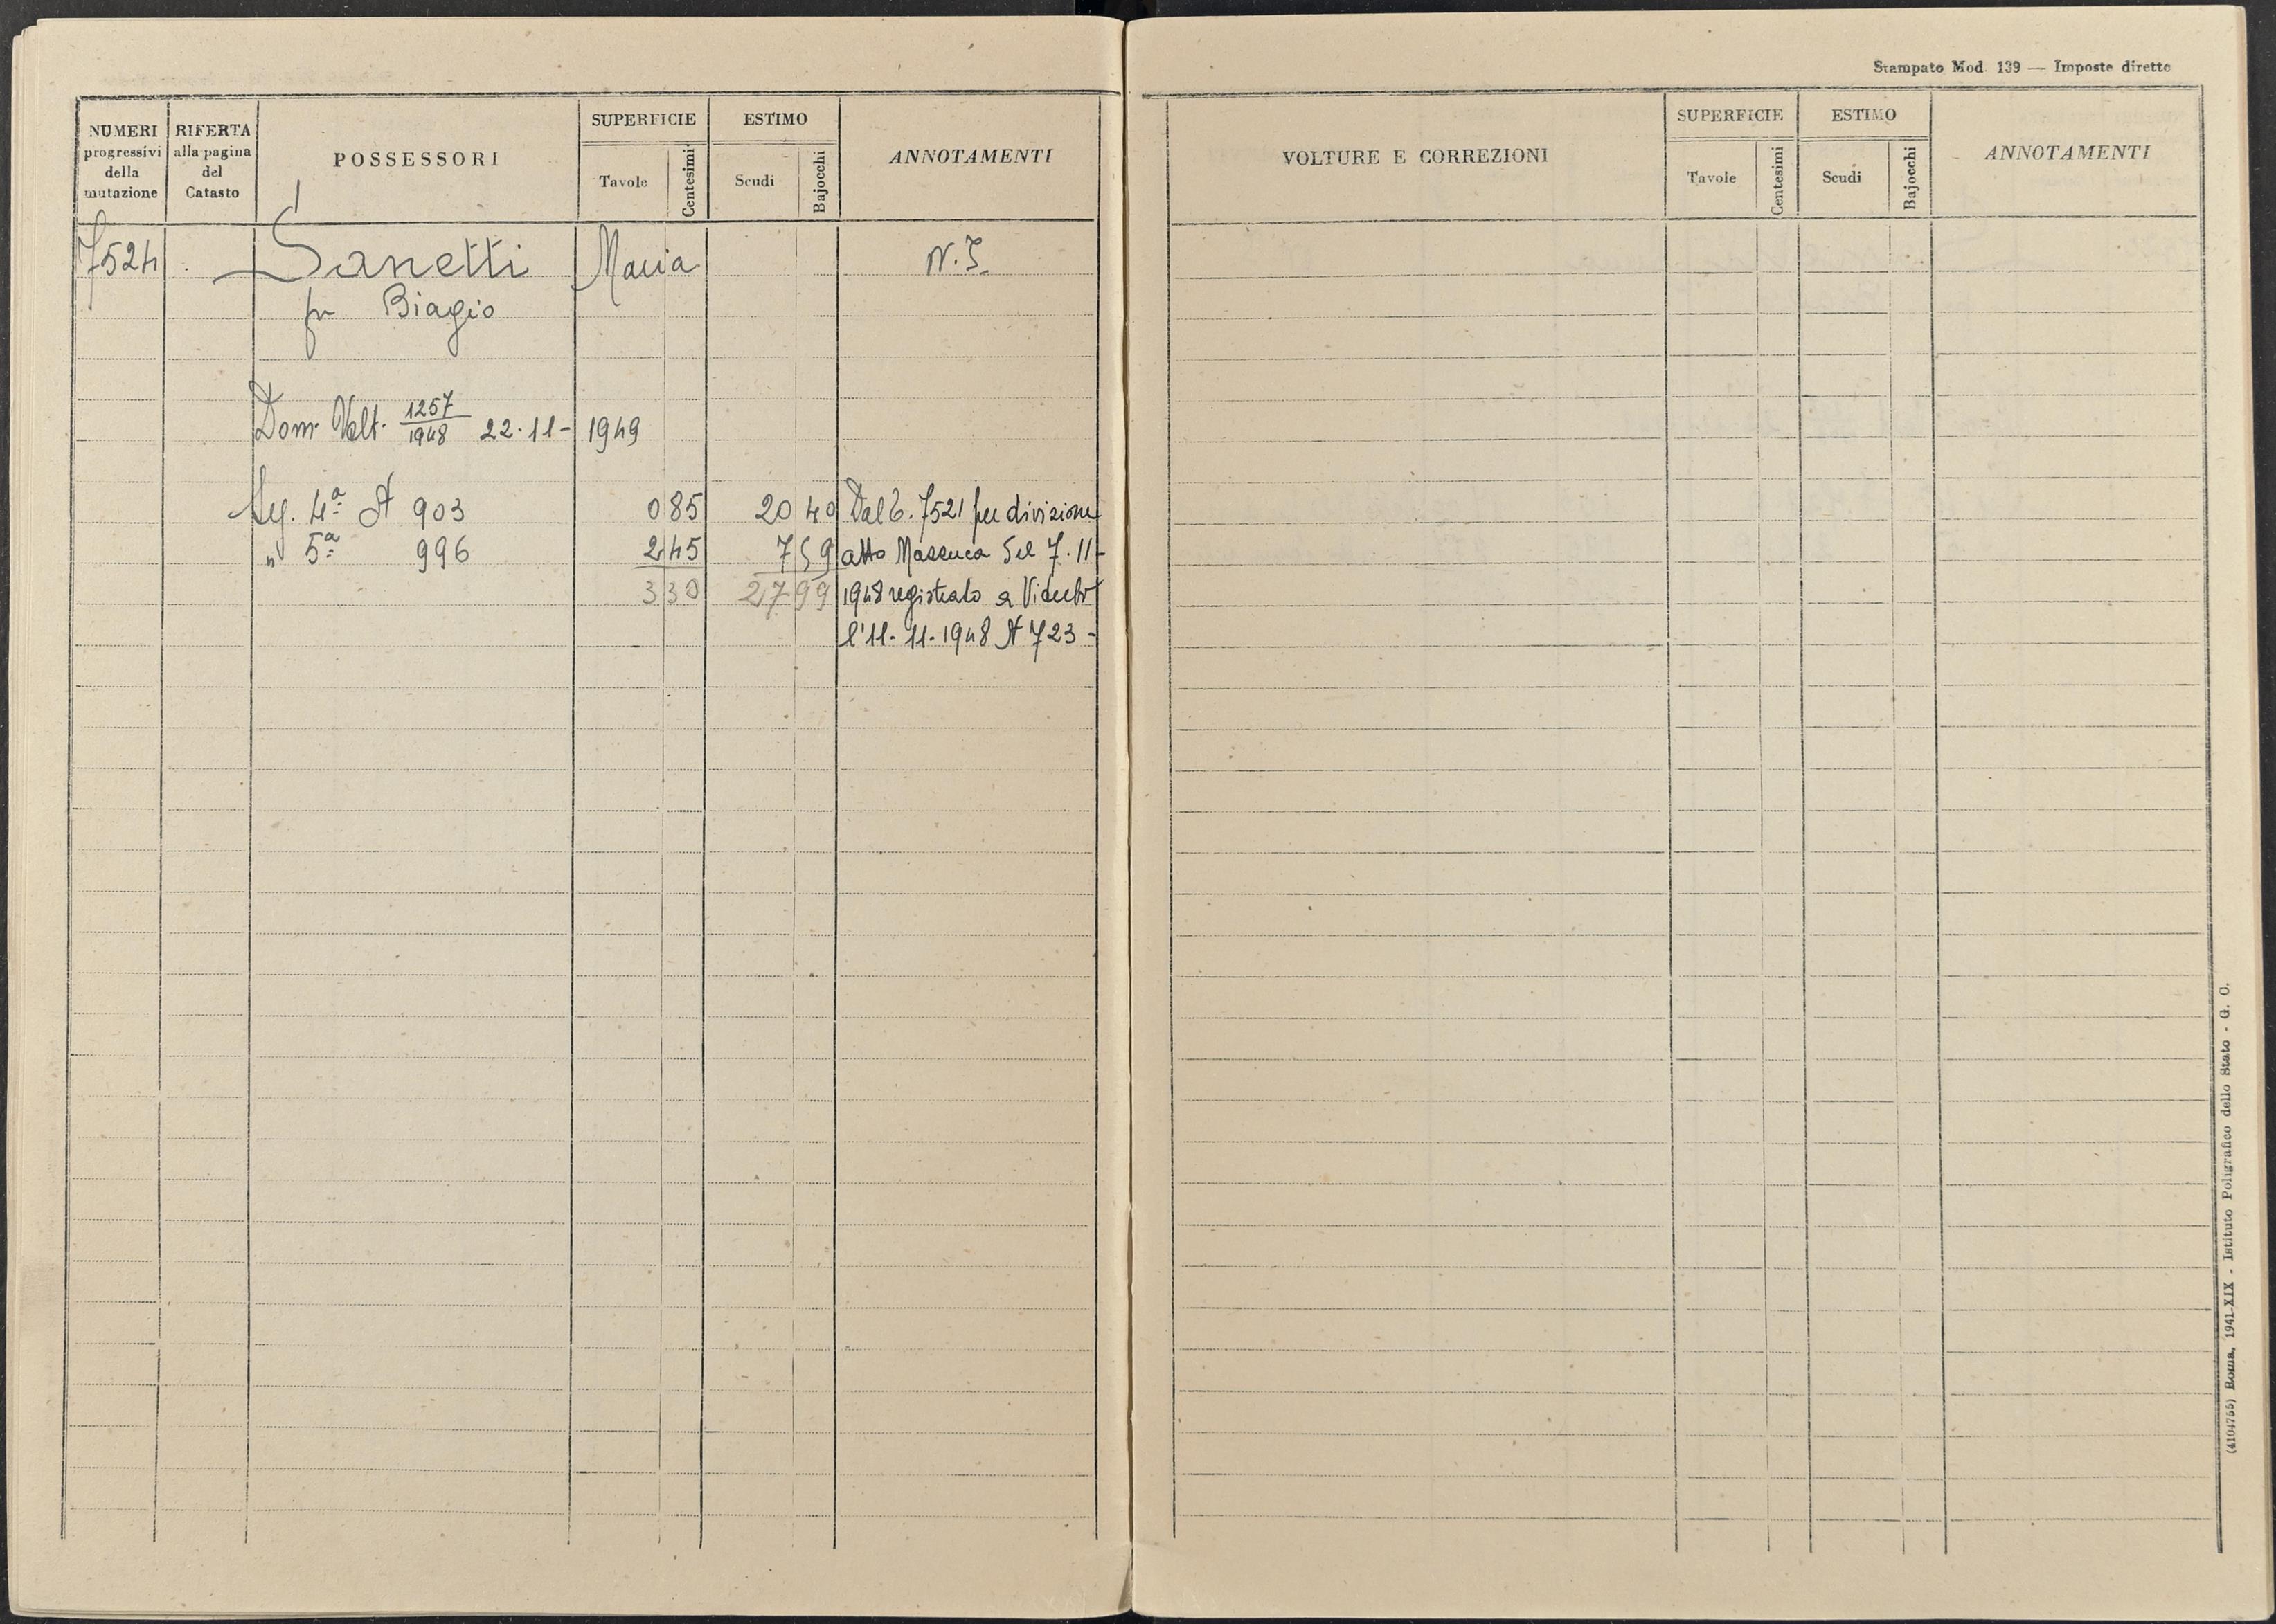 NUMERI progressivi della mutazione
RIFERTA alla pagina del Catasto
POSSESSORI
SUPERFICIE
Tavole
Centesimi
ESTIMO
Scudi
Bajocchi
ANNOTAMENTI
7524 Sanetti Maria
fu Biagio
Dom. Volt. 1257/1948 22-11-1949
Sez. 4ª N 903 0 85 20 40
" 5ª 996 2 45 7 59
3 30 27 99
Dal C. 7521 per divisione
atto del 7.11-
1948 registrato a Viterbo
l'11-11-1948 N 723-
Stampato Mod. 139 — Imposte dirette
VOLTURE E CORREZIONI
SUPERFICIE
Tavole
Centesimi
ESTIMO
Scudi
Bajocchi
ANNOTAMENTI
(4104755) Roma, 1941-XIX - Istituto Poligrafico dello Stato - G. O.